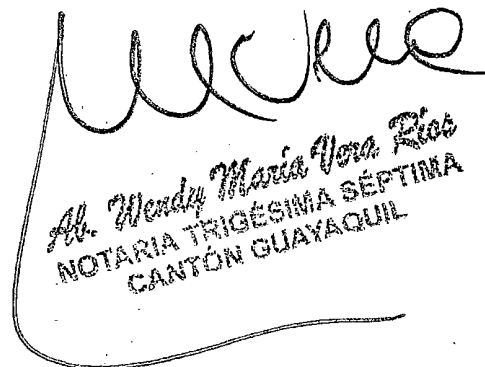 Ab. Wendy María Vera Ríos
NOTARIA TRIGÉSIMA SÉPTIMA
CANTÓN GUAYAQUIL